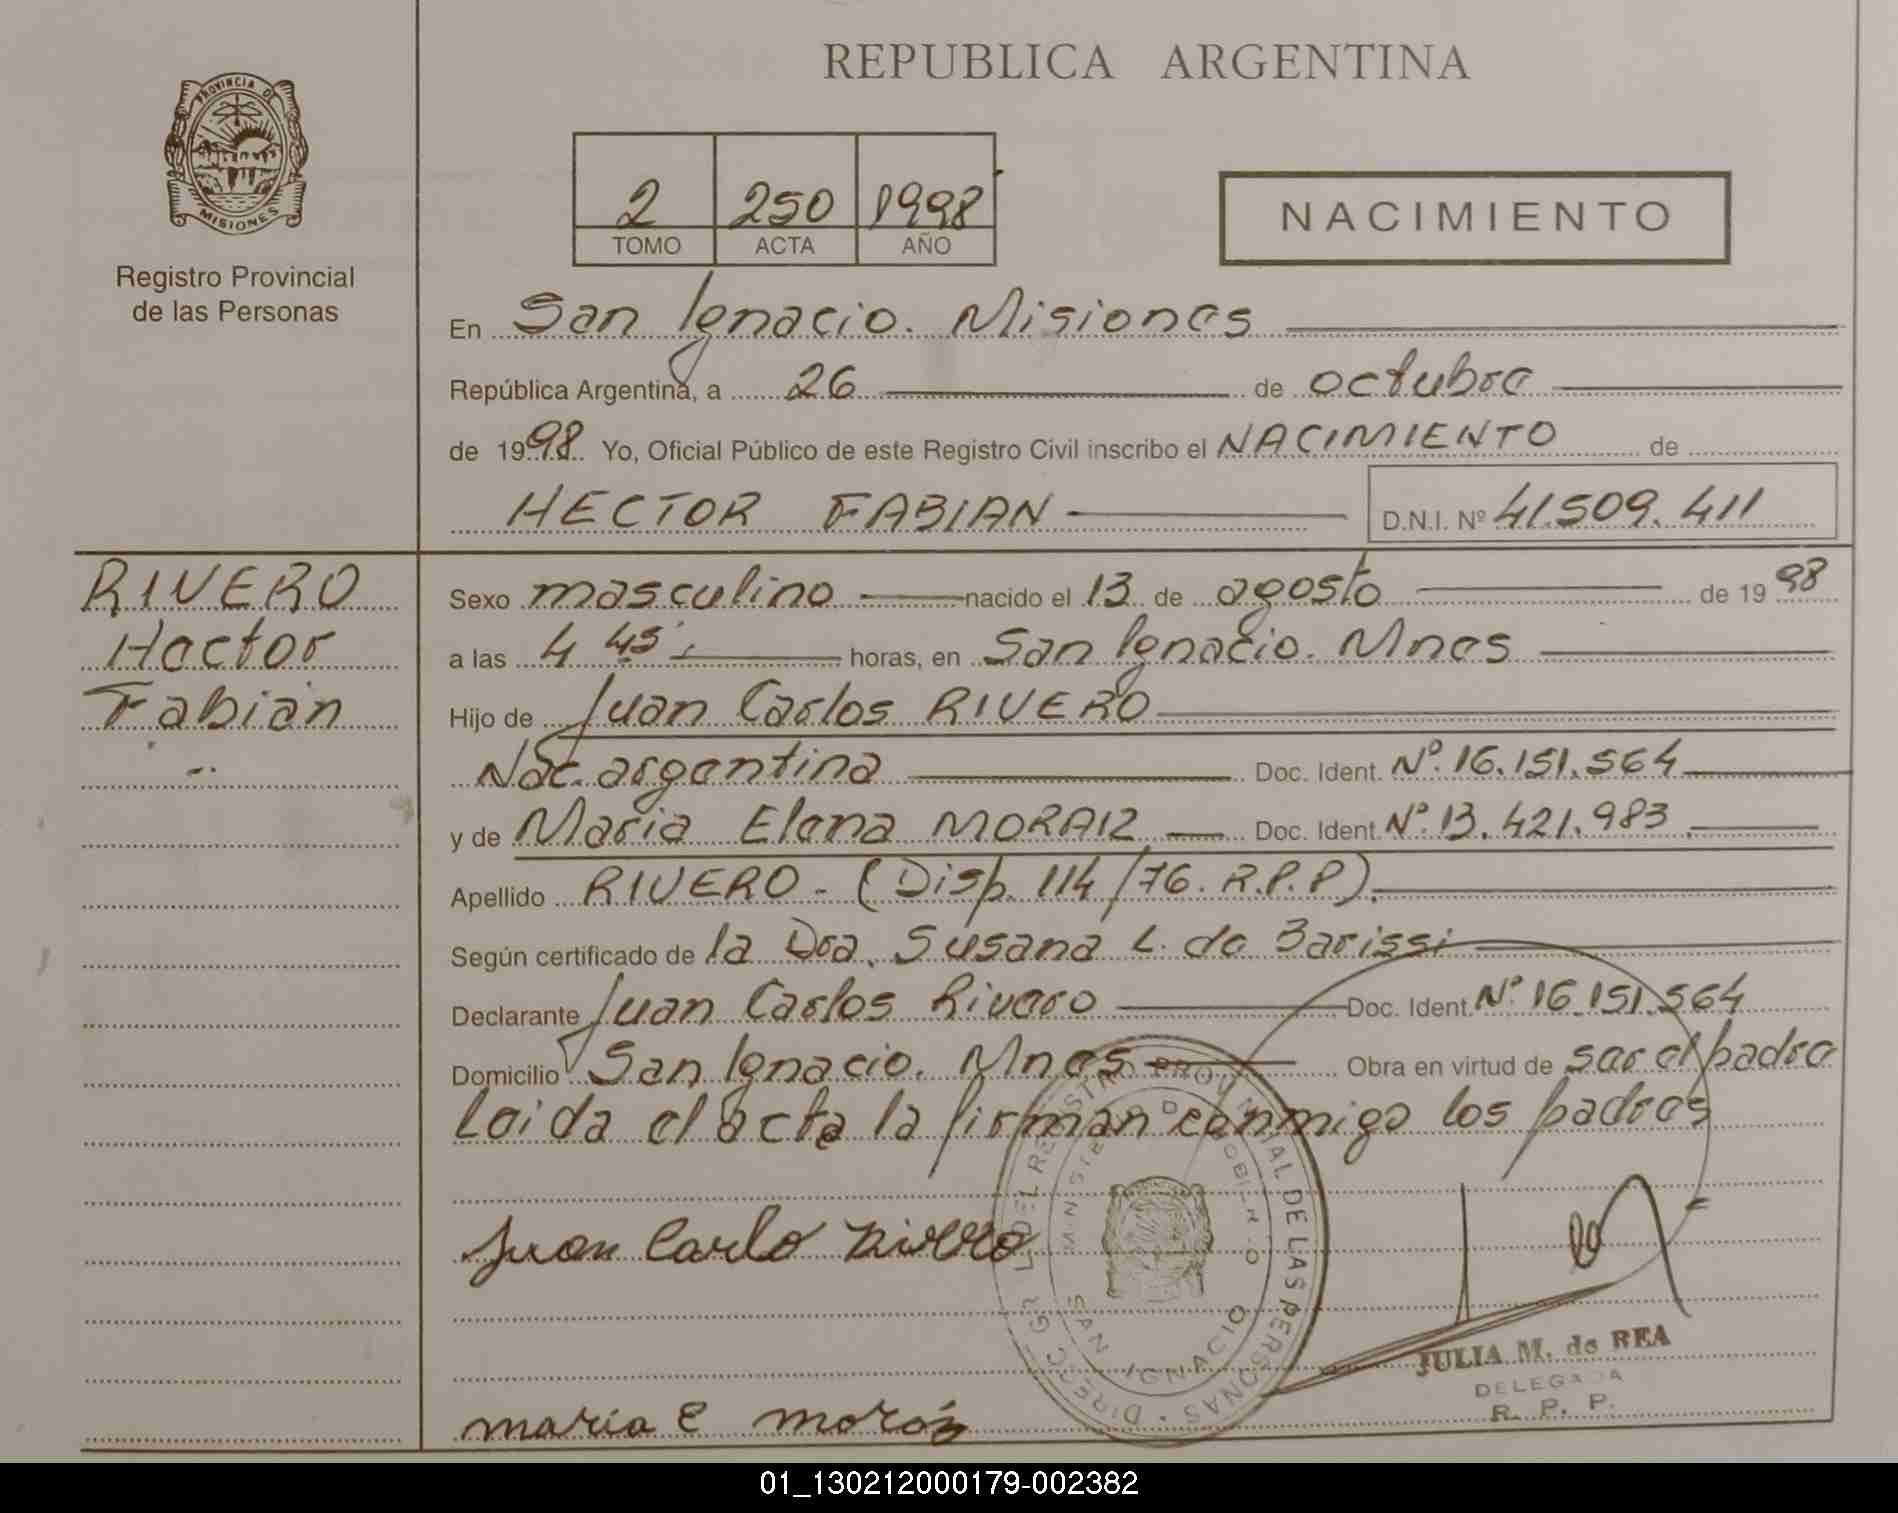 REPUBLICA ARGENTINA
PROVINCIA DE
MISIONES
Registro Provincial
de las Personas
2 250 1998
TOMO ACTA AÑO
NACIMIENTO
En San Ignacio. Misiones
República Argentina, a 26 de octubre
de 1998 Yo, Oficial Público de este Registro Civil inscribo el NACIMIENTO de
HECTOR FABIAN D.N.I. Nº 41.509.411
RIVERO
Hector
Fabián
Sexo masculino nacido el 13 de agosto de 1998
a las 4 45' horas, en San Ignacio. Mnes
Hijo de Juan Carlos RIVERO
Nac. argentina Doc. Ident. Nº. 16.151.564
y de Maria Elena MORAIZ Doc. Ident. Nº. 13.421.983
Apellido RIVERO - (Disp. 114/76. R.P.P).
Según certificado de la Dra. Susana L. de Barissi
Declarante Juan Carlos Rivero Doc. Ident. Nº. 16.151.564
Domicilio San Ignacio. Mnes Obra en virtud de ser el padre
Leida el acta la firman conmigo los padres
Juan Carlo Rivero
SAN IGNACIO
JULIA M. de REA
DELEGADA
R. P. P.
maria E
01_130212000179-002382